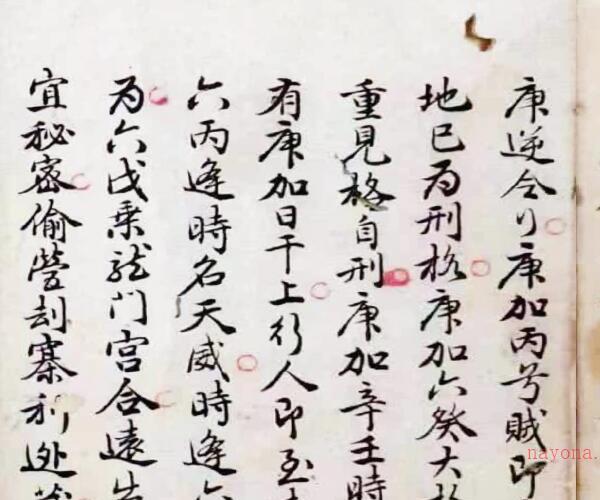 庚逆令行庚加丙兮賊即
地已為刑格庚加六癸大格
重見格自刑庚加辛壬時
有庚加日干上行人即至
六丙逢時名天威時逢六
為六戊乗龍門宮合遠
宜秘密偷營刦寨利逃
nayona.